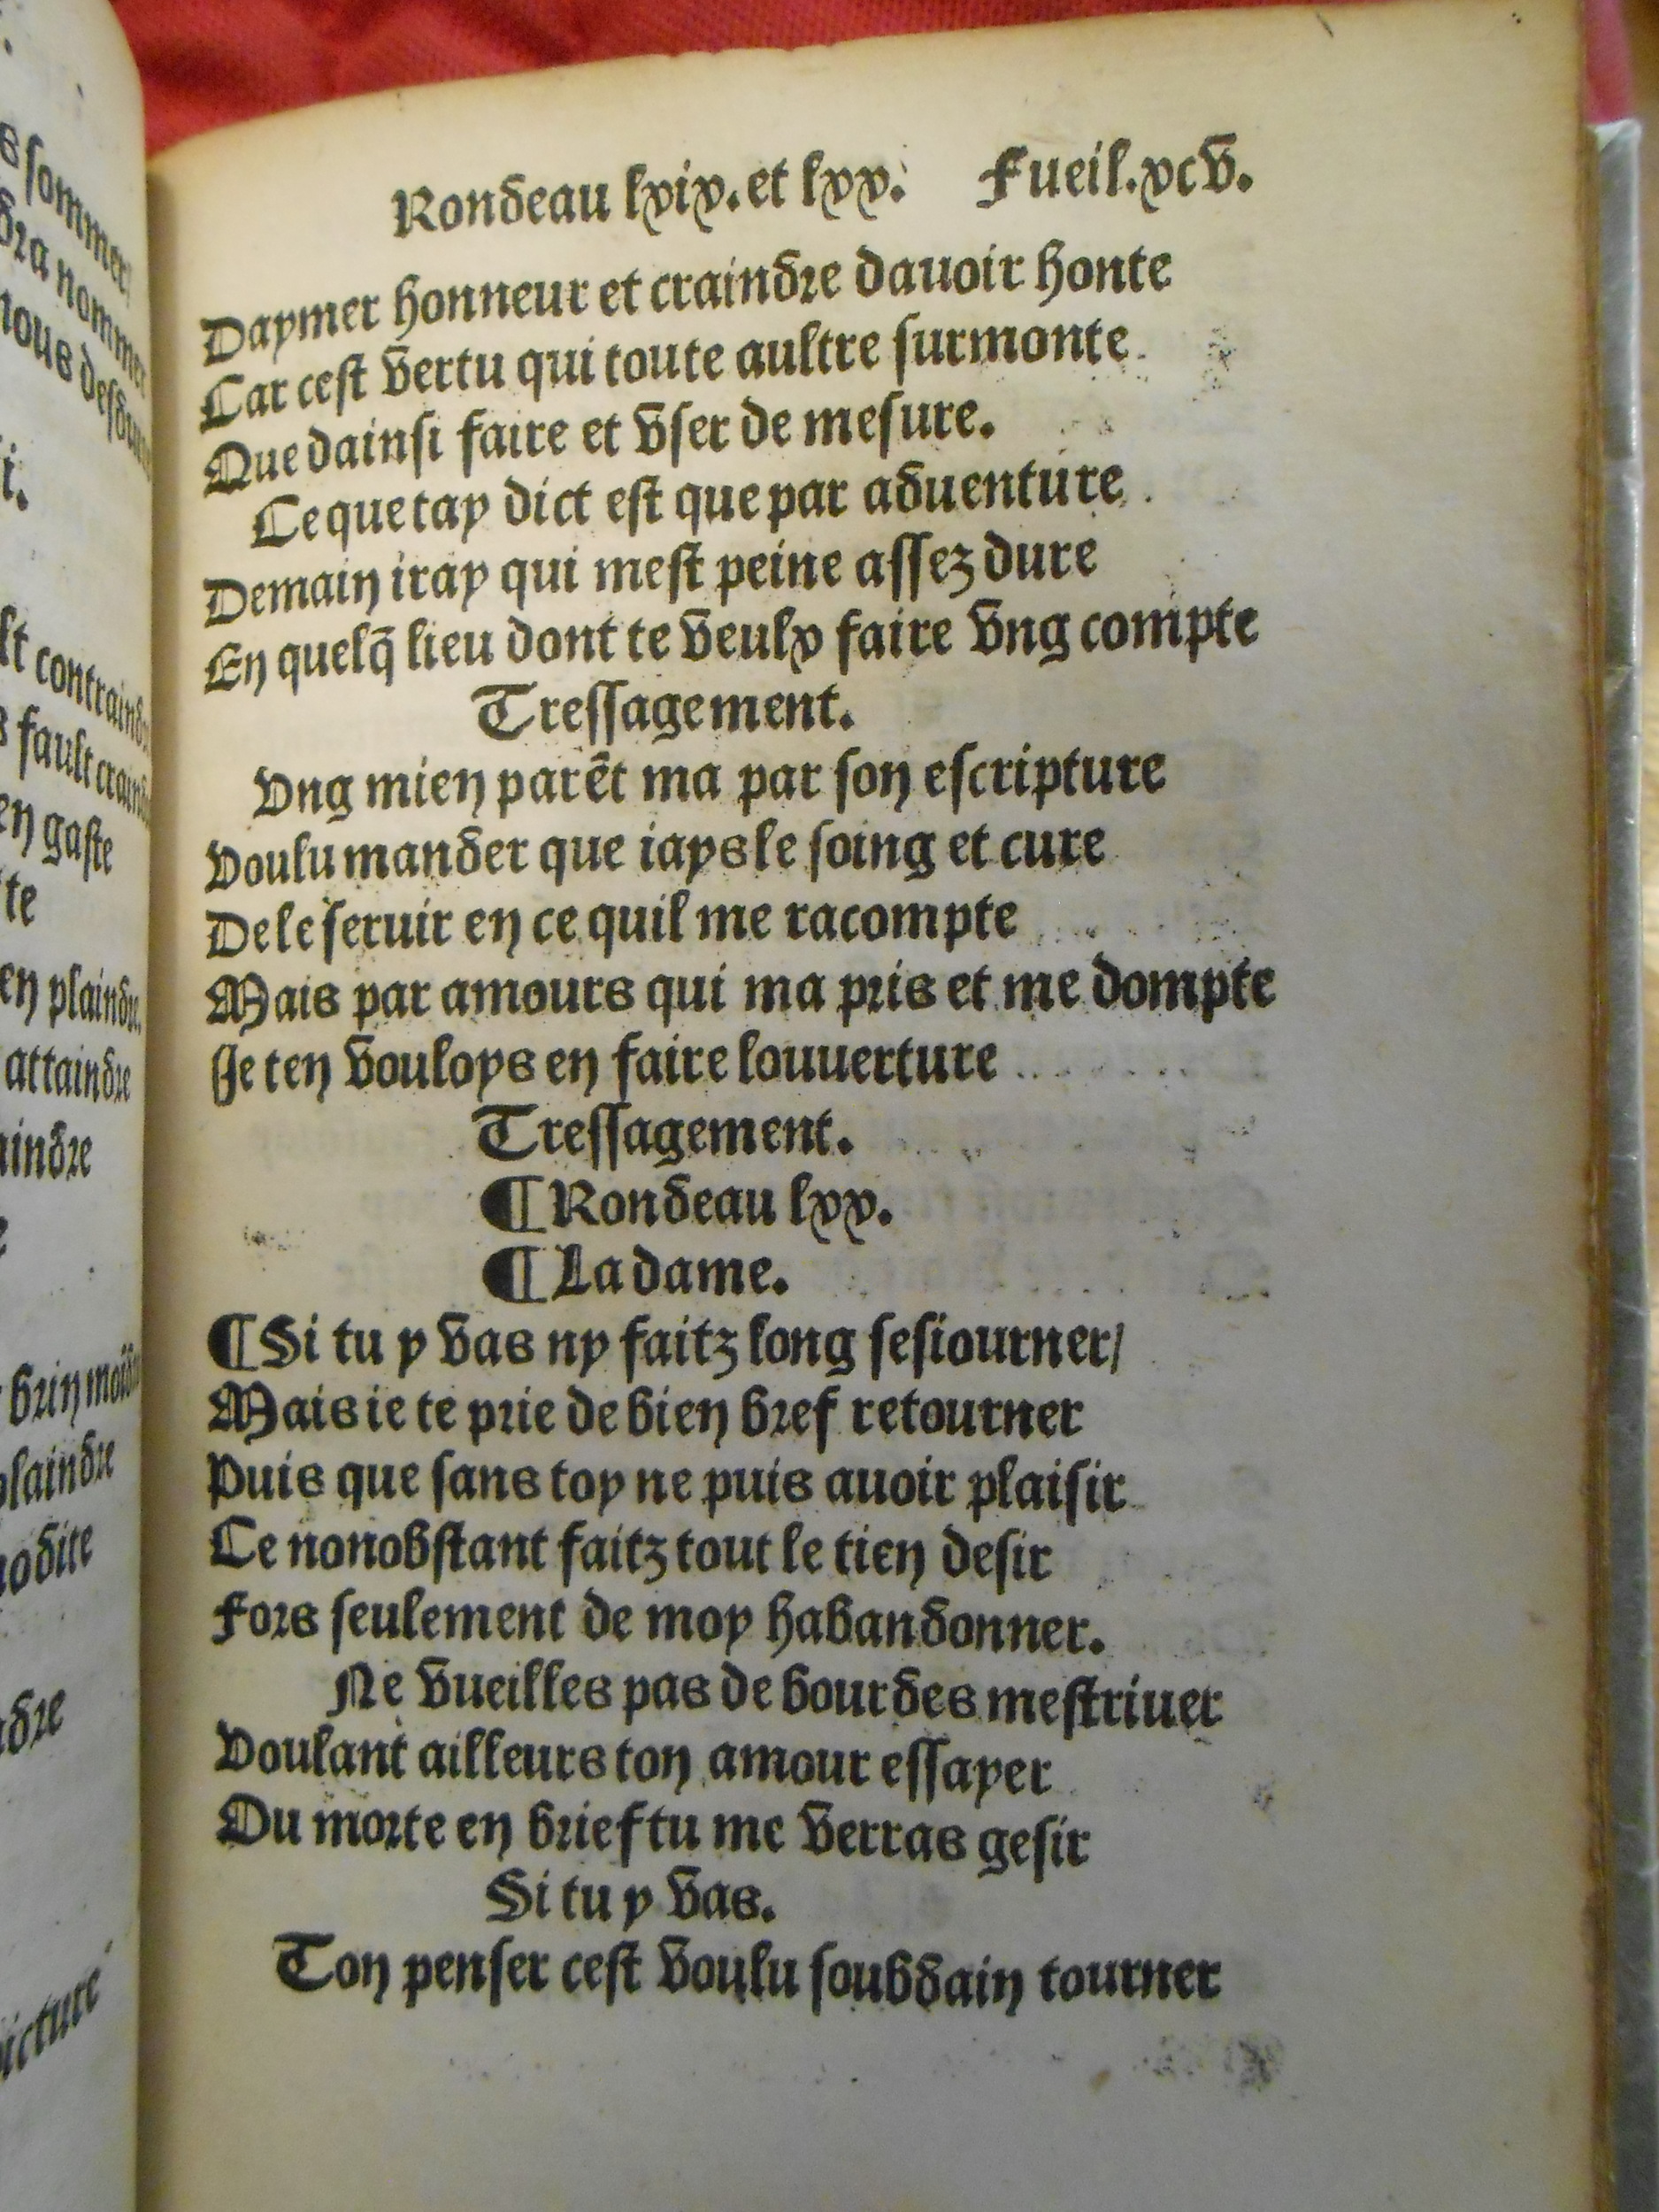 Rondeau lxix. et lxx. Fueil. xcv.
Daymer honneur et craindre dauoir honte
Car cest vertu qui toute aultre surmonte
Que dainsi faire et vser de mesure.
Ce que tay dict est que par aduenture
Demain iray qui mest peine assez dure
En quelq̃ lieu dont te veulx faire vng compte
Tressagement.
Vng mien parẽt ma par son escripture
Voulu mander que iays le soing et cure
De le seruir en ce quil me racompte
Mais par amours qui ma pris et me dompte
Je ten vouloys en faire louuerture
Tressagement.
¶ Rondeau lxx.
¶ La dame.
¶ Si tu y vas ny faitz long sesiourner/
Mais ie te prie de bien bref retourner
Puis que sans toy ne puis auoir plaisir
Ce nonobstant faitz tout le tien desir
Fors seulement de moy habandonner.
Ne vueilles pas de bourdes mestriuer
Voulant ailleurs ton amour essayer
Ou morte en brief tu me verras gesir
Si tu y vas.
Ton penser cest voulu soubdain tourner